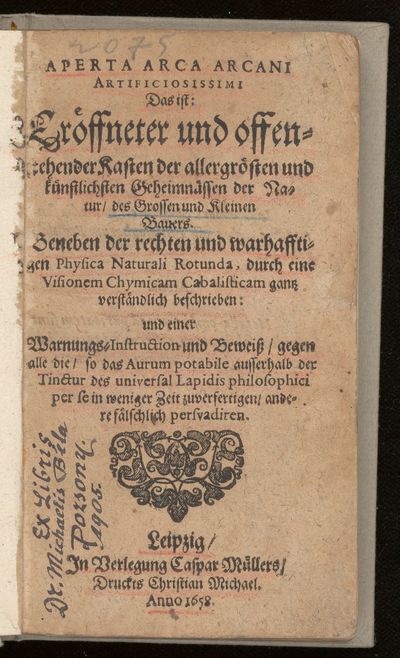 2075
APERTA ARCA ARCANI
ARTIFICIOSISSIMI
Das ist:
Eröffneter und offen-
stehender Kasten der allergrösten und
künstlichsten Geheimnüssen der Na-
tur/ des Grossen und Kleinen
Bauers.
Beneben der rechten und warhaffti-
gen Physica Naturali Rotunda, durch eine
Visionem Chymicam Cabalisticam gantz
verständlich beschrieben:
und einer
Warnungs-Instruction und Beweiß/ gegen
alle die/ so das Aurum potabile ausserhalb der
Tinctur des universal Lapidis philosophici
per se in weniger Zeit zuverfertigen/ ande-
re fälschlich persvadiren.
Ex Libris
Dr. Michaelis Béla
Pozsony
1905.
Leipzig/
In Verlegung Caspar Müllers/
Druckts Christian Michael.
Anno 1658.